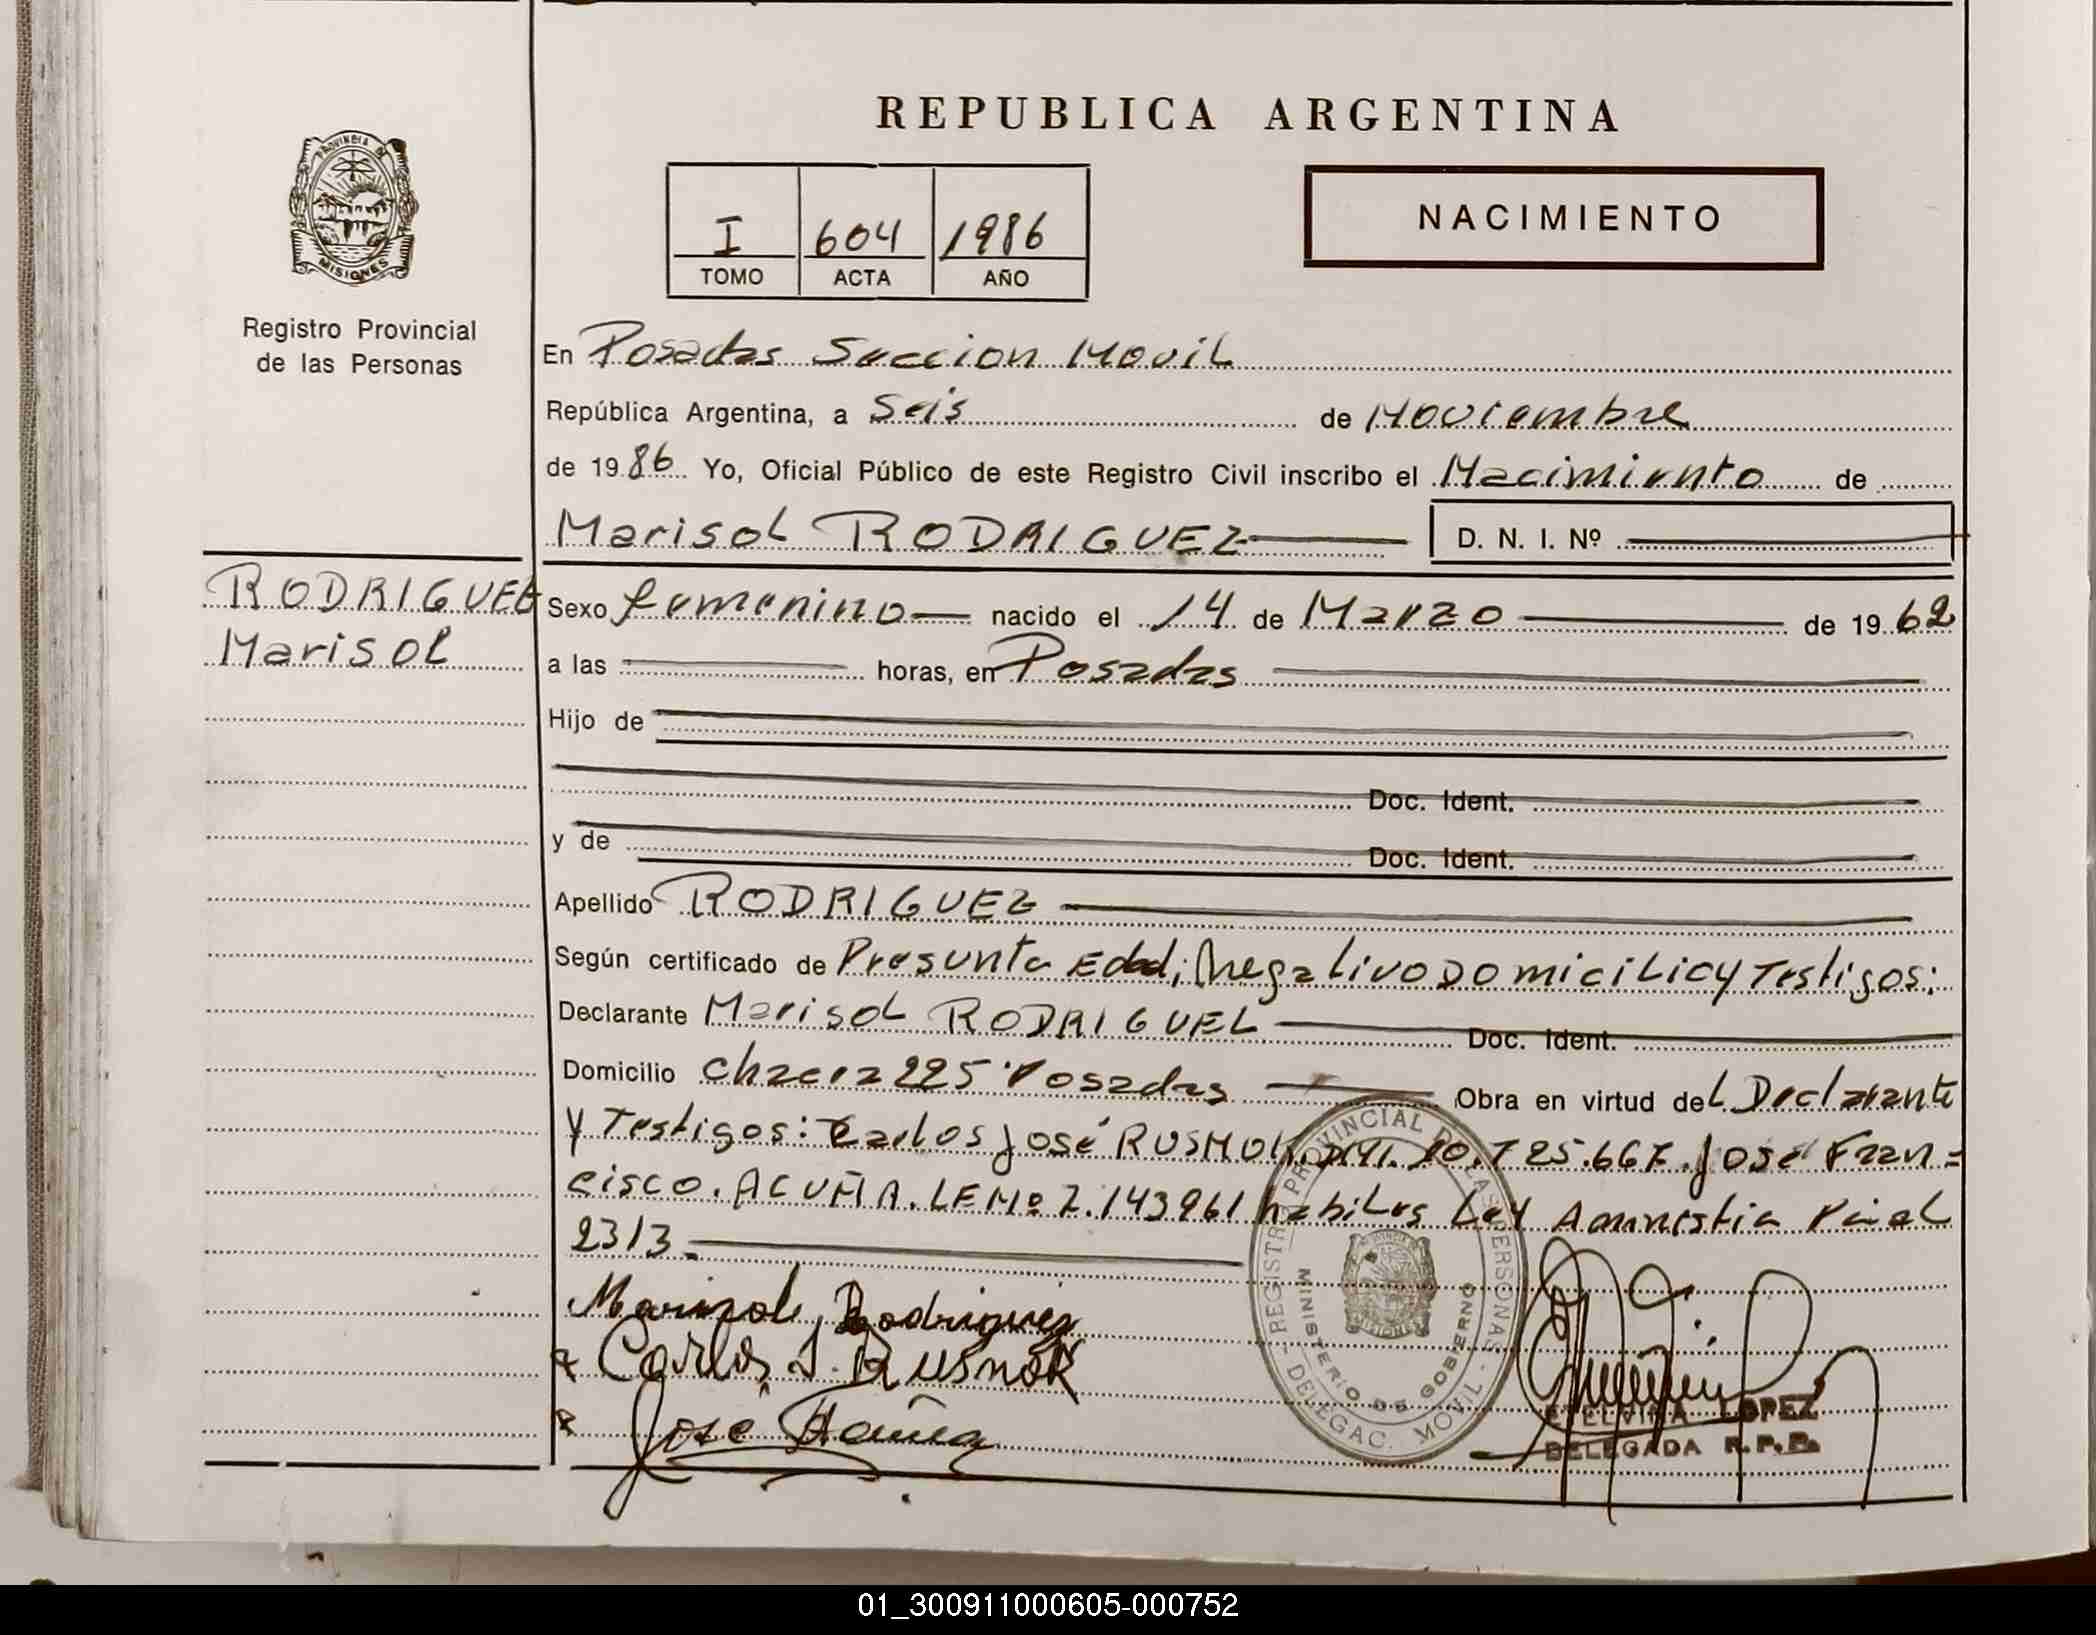 REPUBLICA ARGENTINA
PROVINCIA DE
MISIONES
Registro Provincial
de las Personas
I 604 1986
TOMO ACTA AÑO
NACIMIENTO
En Posadas Seccion Movil
República Argentina, a Seis de Noviembre
de 1986 Yo, Oficial Público de este Registro Civil inscribo el Nacimiento de
Marisol RODRIGUEZ D. N. I. Nº
RODRIGUEZ
Marisol
Sexo femenino nacido el 14 de Marzo de 1962
a las horas, en Posadas
Hijo de
Doc. Ident.
y de Doc. Ident.
Apellido RODRIGUEZ
Según certificado de Presunta Edad; Negativo Domicilio y Testigos;
Declarante Marisol RODRIGUEZ Doc. Ident.
Domicilio Chacra 225 Posadas Obra en virtud del Declarante
y Testigos: Carlos José RUSNOK. DNI. 10.725.667. José Fran=
cisco. ACUÑA. LE Nº 7.143961 habiles Ley Amnistia Pcial
2313.
Marisol Rodriguez
Carlos J. RUSNOK
José Acuña
REGISTRO PROVINCIAL DE LAS PERSONAS - DELEGAC. MOVIL -
MINISTERIO DE GOBIERNO
ETELVINA LOPEZ
DELEGADA R.P.P.
01_300911000605-000752